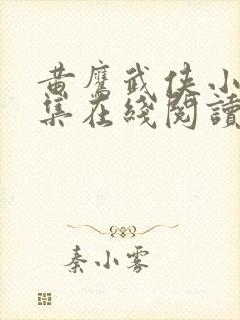 黄鹰武侠小
集在线阅读
秦小雾